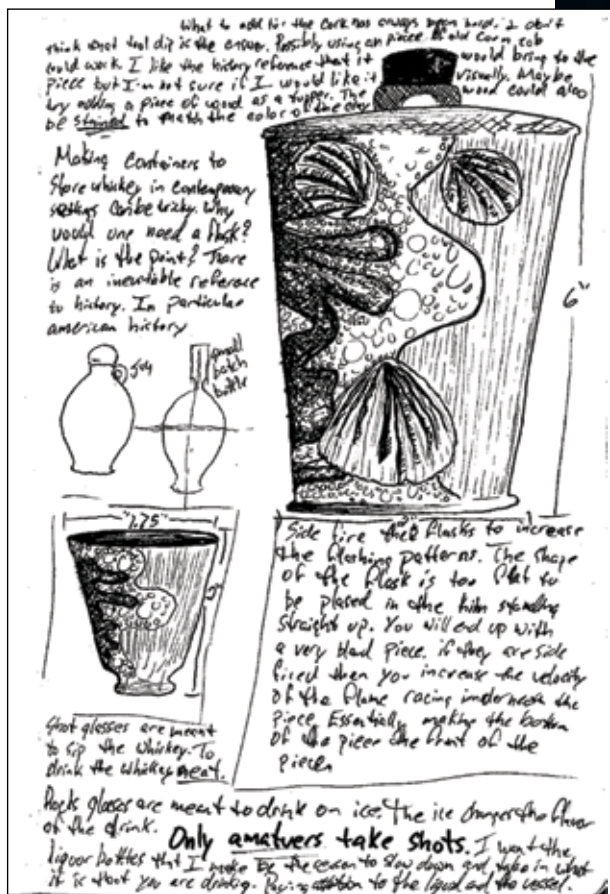 What to add for the cork has always been hard. I don't
think that tool dip is the answer. Possibly using an piece of old corn cob
could work. I like the history reference that it would bring to the
piece but I'm not sure if I would like it visually. Maybe
try adding a piece of wood as a topper. The wood could also
be stained to match the color of the clay
Making containers to
store whiskey in contemporary
settings can be tricky. Why
would one need a flask?
What is the point? There
is an inevitable reference
to history. In particular
american history
Jug
small
batch
bottle
6"
1.75"
Side fire the flasks to increase
the flashing patterns. The shape
of the flask is too flat to
be placed in the kiln standing
straight up. You will end up with
a very bland piece. if they are side
fired then you increase the velocity
of the flame racing underneath the
piece. Essentially making the bottom
of the piece the front of the
piece.
Shot glasses are meant
to sip the whiskey. To
drink the whiskey neat.
Rocks glasses are meant to drink on ice. The ice changes the flavor
of the drink.
Only amatuers take shots. I want the
liquor bottles that I make be the reason to slow down and take in what
it is that you are drinking. Paying attention to the liquid and the vessel.